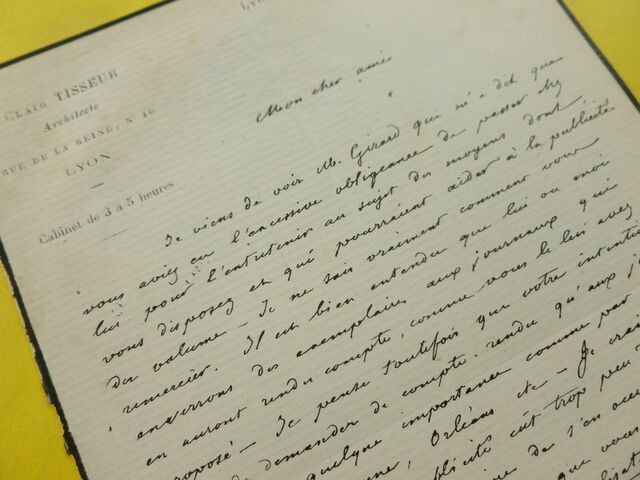 CLAIR TISSEUR
Architecte
RUE DE LA REINE, N° 10
LYON
Cabinet de 3 à 5 heures
Mon cher ami
Je viens de voir M. Girard qui m'a dit que
vous aviez eu l'excessive obligeance de passer chez
lui pour l'entretenir au sujet des moyens dont
vous disposez et qui pourraient aider à la publicité
du volume – Je ne sais vraiment comment vous
remercier. Il est bien entendu que lui ou moi
enverrons des exemplaires aux journaux qui
en auront rendu compte, comme vous le lui avez
proposé – Je pense toutefois que votre intention
de demander de compte-rendu qu'aux
quelque importance comme par
Orléans etc – Je
publicité eût trop peu
de s'en
que vous